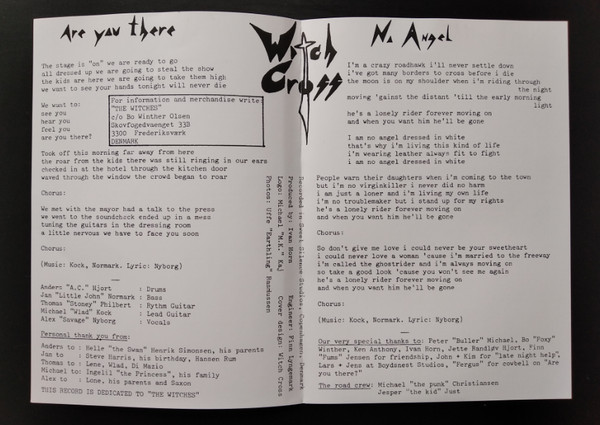 Are you there
The stage is "on" we are ready to go
all dressed up we are going to steal the show
the kids are here we are going to take them high
we want to see your hands tonight will never die
We want to:
see you
hear you
feel you
are you there?
For information and merchandise write:
"THE WITCHES"
c/o Bo Winther Olsen
Skovfogedvaenget 33D
3300 Frederiksværk
DENMARK
Took off this morning far away from here
the roar from the kids there was still ringing in our ears
checked in at the hotel through the kitchen door
waved through the window the crowd began to roar
Chorus:
We met with the mayor had a talk to the press
we went to the soundchcek ended up in a mess
tuning the guitars in the dressing room
a little nervous we have to face you soon
Chorus:
(Music: Kock, Normark. Lyric: Nyborg)
Anders "A.C." Hjort : Drums
Jan "Little John" Normark : Bass
Thomas "Stoney" Philbert : Rythm Guitar
Michael "Wind" Kock : Lead Guitar
Alex "Savage" Nyborg : Vocals
Personal thank you from:
Anders to : Helle "the Swan" Henrik Simonsen, his parents
Jan to : Steve Harris, his birthday, Hansen Rum
Thomas to : Lene, Wlad, Di Mazio
Michael to: Ingelil "the Princess", his family
Alex to : Lone, his parents and Saxon
THIS RECORD IS DEDICATED TO "THE WITCHES"
Witch
Cross
Recorded in Sweet Silence Studios, Copenhagen, Denmark
Produced by: Ivan Horn Engineer: Finn Lyngemark
Logo: Michael "M.K." Kaj Cover design: Witch Cross
Photos: Uffe "Earthling" Rasmussen
No Angel
I'm a crazy roadhawk i'll never settle down
i've got many borders to cross before i die
the moon is on my shoulder when i'm riding through
the night
moving 'gainst the distant 'till the early morning
light
he's a lonely rider forever moving on
and when you want him he'll be gone
I am no angel dressed in white
that's why i'm living this kind of life
i'm wearing leather always fit to fight
i am no angel dressed in white
People warn their daughters when i'm coming to the town
but i'm no virginkiller i never did no harm
i am just a loner and i'm living my own life
i'm no troublemaker but i stand up for my rights
he's a lonely rider forever moving on
and when you want him he'll be gone
Chorus:
So don't give me love i could never be your sweetheart
i could never love a woman 'cause i'm married to the freeway
i'm called the ghostrider and i'm always moving on
so take a good look 'cause you won't see me again
he's a lonely rider forever moving on
and when you want him he'll be gone
Chorus:
(Music: Kock, Normark. Lyric: Nyborg)
Our very special thanks to: Peter "Buller" Michael, Bo "Foxy"
Winther, Ken Anthony, Ivan Horn, Jette Randløv Hjort, Finn
"Fums" Jensen for friendship, John + Kim for "late night help",
Lars + Jens at Boysdnest Studios, "Pergus" for cowbell on "Are
you there?"
The road crew: Michael "the punk" Christiansen
Jesper "the kid" Just